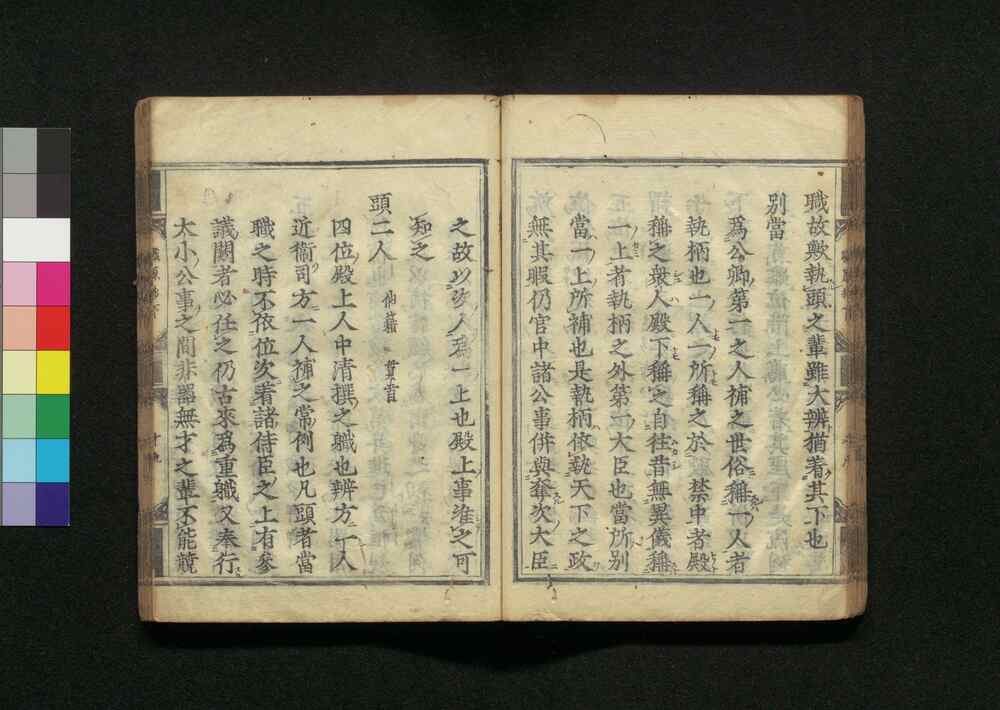 職故歟執頭之輩雖大辨猶著其下也
別當
爲公卿第一之人補之世俗稱一人者
執柄也一人一所稱之於禁中者殿
稱之衆人殿下稱之自往昔無異儀稱
一上者執柄之外第一大臣也當所別
當一上所補也是執柄依執天下之政
無其暇仍官中諸公事併與奪次大臣
之故以次人爲一上也殿上事准之可
知之
頭二人 仙籍 貫首
四位殿上人中清撰之職也辨方一人
近衞司方一人補之常例也凡頭者當
職之時不依位次著諸侍臣之上有參
議闕者必任之仍古來爲重職又奉行
大小公事之間非器無才之輩不能競
十九